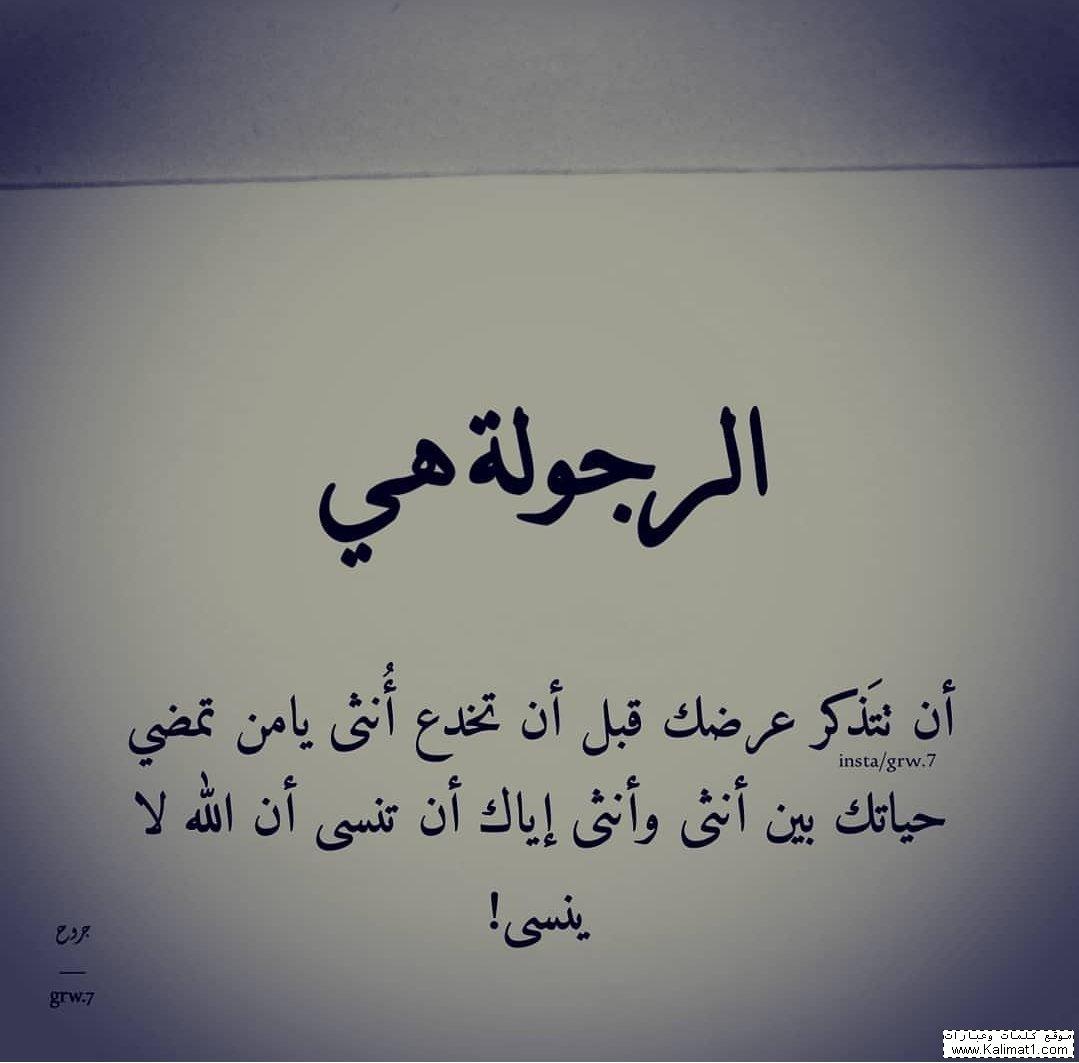 الرجولة هي
أن تتَذكر عرضك قبل أن تخدع أُنثى يامن تمضي
insta/grw.7
حياتك بين أنثى وأنثى إياك أن تنسى أن الله لا
ينسى!
جروح
grw.7
موقع كلمات وعبارات
www.Kalimat1.com